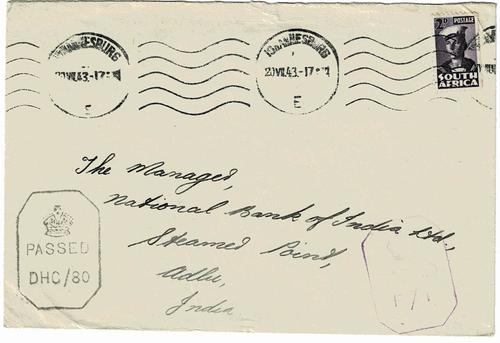 JOHANNESBURG
20 VII 43 - 17
E
JOHANNESBURG
20 VII 43 - 17
E
2D POSTAGE
SOUTH
AFRICA
The Managed,
National Bank of India Ltd.,
Steamed Point,
Adlu,
India
PASSED
DHC/80